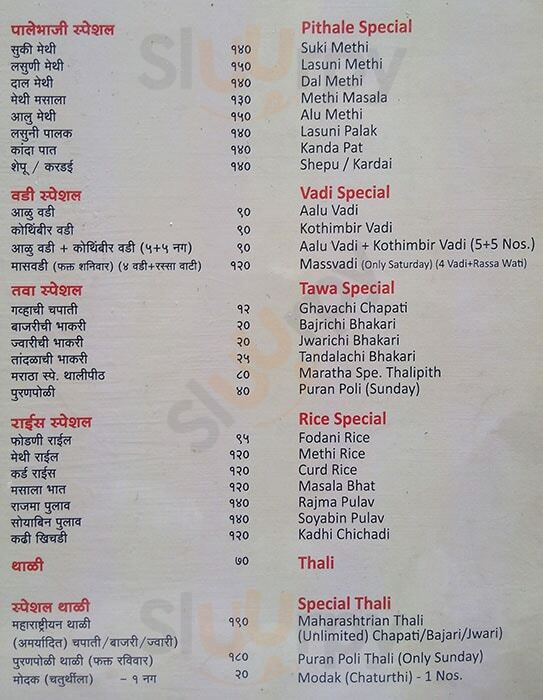 पालेभाजी स्पेशल Pithale Special
सुकी मेथी १४० Suki Methi
लसुणी मेथी १५० Lasuni Methi
दाल मेथी १४० Dal Methi
मेथी मसाला १३० Methi Masala
आलु मेथी १५० Alu Methi
लसुनी पालक १४० Lasuni Palak
कांदा पात १४० Kanda Pat
शेपू / करडई १४० Shepu / Kardai
वडी स्पेशल Vadi Special
आळु वडी ९० Aalu Vadi
कोथिंबीर वडी ९० Kothimbir Vadi
आळु वडी + कोथिंबीर वडी (५+५ नग) ९० Aalu Vadi + Kothimbir Vadi (5+5 Nos.)
मासवडी (फक्त शनिवार) (४ वडी+रस्सा वाटी) १२० Massvadi (Only Saturday) (4 Vadi+Rassa Wati)
तवा स्पेशल Tawa Special
गव्हाची चपाती १२ Ghavachi Chapati
बाजरीची भाकरी २० Bajrichi Bhakari
ज्वारीची भाकरी २० Jwarichi Bhakari
तांदळाची भाकरी २५ Tandalachi Bhakari
मराठा स्पे. थालीपीठ ८० Maratha Spe. Thalipith
पुरणपोळी ४० Puran Poli (Sunday)
राईस स्पेशल Rice Special
फोडणी राईल ९५ Fodani Rice
मेथी राईल १२० Methi Rice
कर्ड राईस १२० Curd Rice
मसाला भात १२० Masala Bhat
राजमा पुलाव १४० Rajma Pulav
सोयाबिन पुलाव १४० Soyabin Pulav
कढी खिचडी १२० Kadhi Chichadi
थाळी ७० Thali
स्पेशल थाळी Special Thali
महाराष्ट्रीयन थाळी १९० Maharashtrian Thali
(अमर्यादित) चपाती/बाजरी/ज्वारी) (Unlimited) Chapati/Bajari/Jwari)
पुरणपोळी थाळी (फक्त रविवार) १८० Puran Poli Thali (Only Sunday)
मोदक (चतुर्थीला) - १ नग २० Modak (Chaturthi) - 1 Nos.